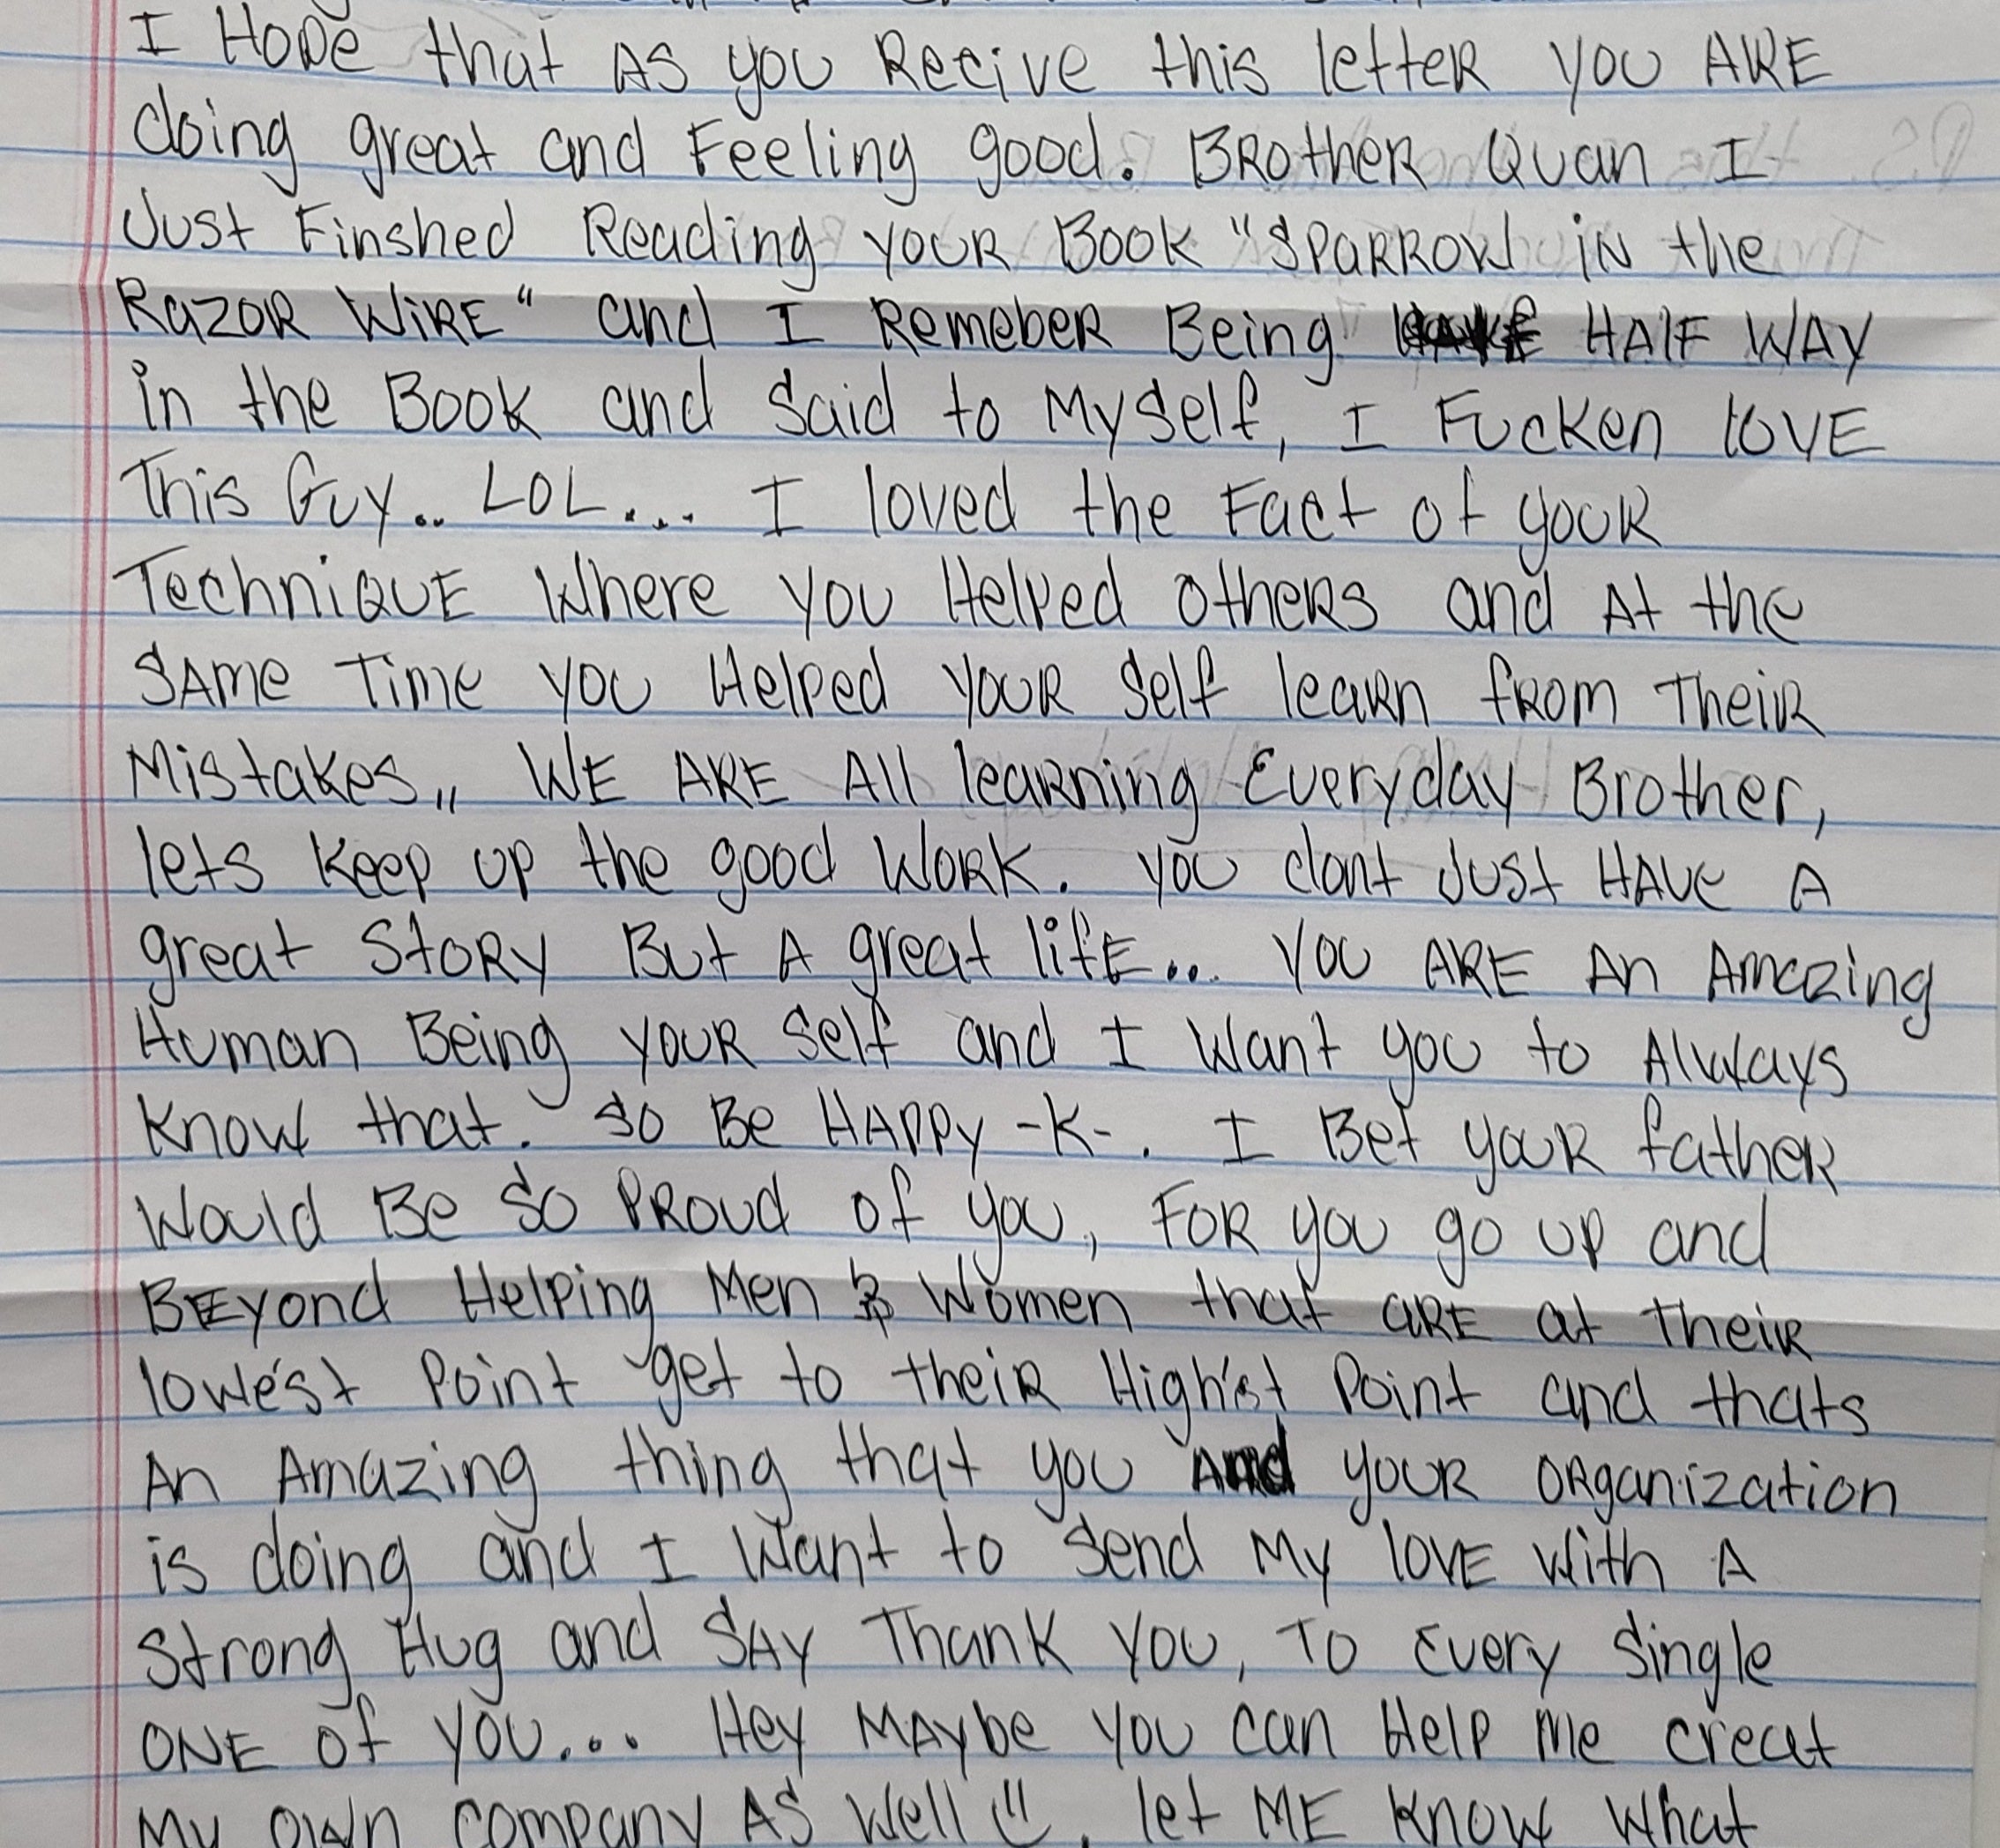 I Hope that AS you Recive this letteR you ARE
doing great and Feeling good. BRotheR Quan I
Just Finshed Reading youR Book "SPaRRow iN the
RazoR WiRE" and I RemebeR Being HAlF WAY
in the Book and Said to MySelf, I Fucken lovE
This Guy.. LOL.... I loved the Fact of youR
TechniQUE Where you Helped otheRs and At the
SAme Time you Helped youR Self leaRn fRom TheiR
Mistakes,, WE ARE All leaRning Everyday Brother,
lets Keep up the good WoRK. you dont Just HAve A
great StoRy But A great lifE... you ARE An Amazing
Human Being youR Self and I Want you to Always
Know that. So Be HAPPy -K-. I Bet youR fatheR
Would Be So PRoud of you, FoR you go up and
BEyond Helping Men & Women that aRE at TheiR
lowe'st Point get to theiR High'st Point and thats
An Amazing thing that you And youR oRganization
is doing and I Want to Send My lovE With A
Strong Hug and SAy Thank you, To Every Single
ONE of you... Hey MAybe you can Help Me creat
My own company AS Well. let ME Know What